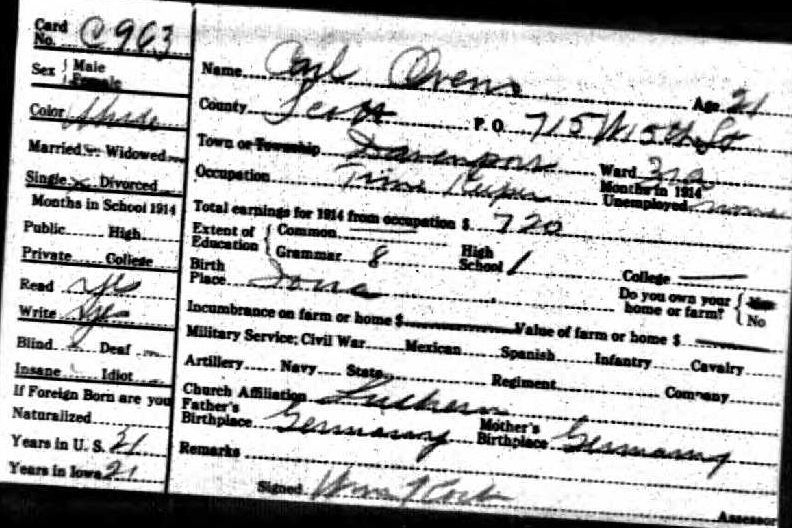 Card No. C963
Sex { Male Female
Color White
Married Widowed
Single x Divorced
Months in School 1914
Public High
Private College
Read yes
Write yes
Blind Deaf
Insane Idiot
If Foreign Born are you
Naturalized
Years in U. S. 21
Years in Iowa 21
Name Carl Ovens Age 21
County Scott P. O. 715 W 15th St
Town or Township Davenport Ward 3rd
Occupation Time Keeper Months in 1914 Unemployed none
Total earnings for 1914 from occupation $ 720
Extent of Education { Common Grammar 8 High School 1 College
Birth Place Iowa Do you own your home or farm? { Yes No
Incumbrance on farm or home $ Value of farm or home $
Military Service; Civil War Mexican Spanish Infantry Cavalry
Artillery Navy State Regiment Company
Church Affiliation Luthern
Father's Birthplace Germany Mother's Birthplace Germany
Remarks
Signed Wm Assessor